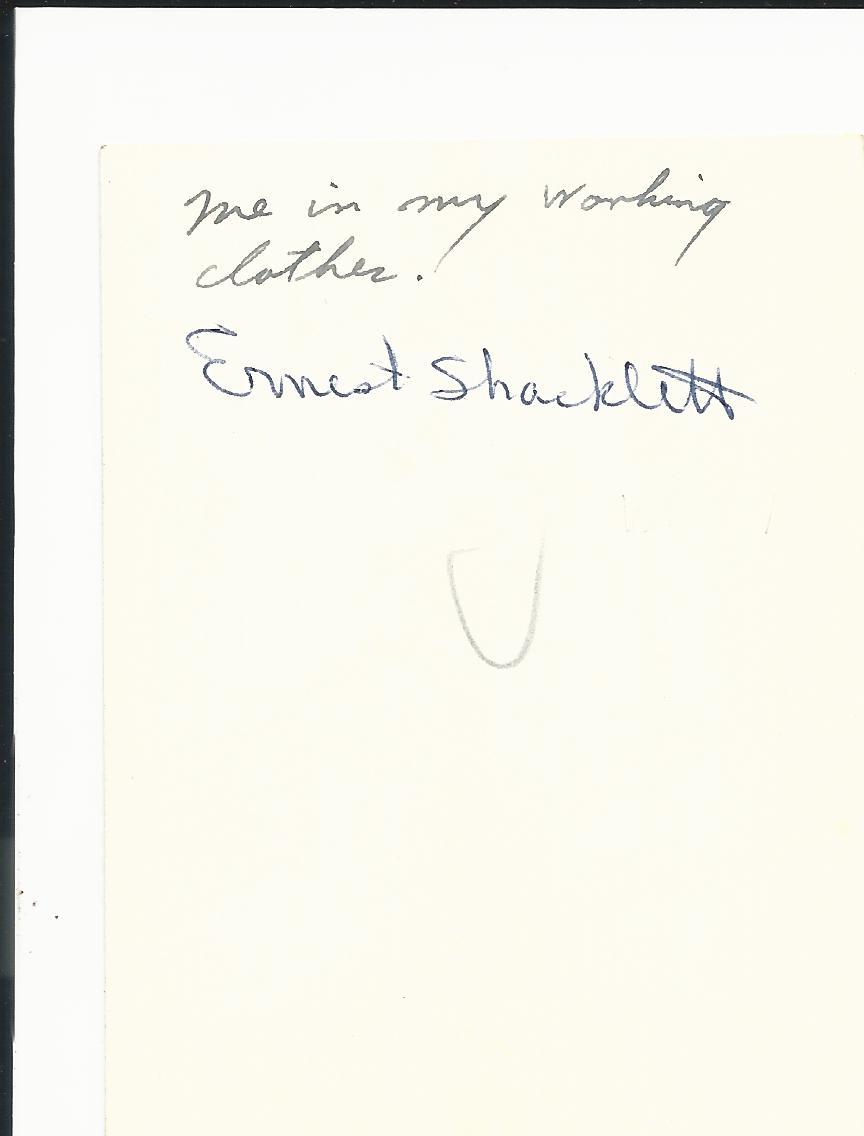 me in my working
clothes.
Ernest Shacklett